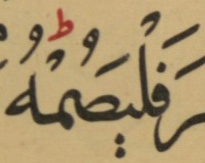 رَ فَلْيَصُمْهُ ط